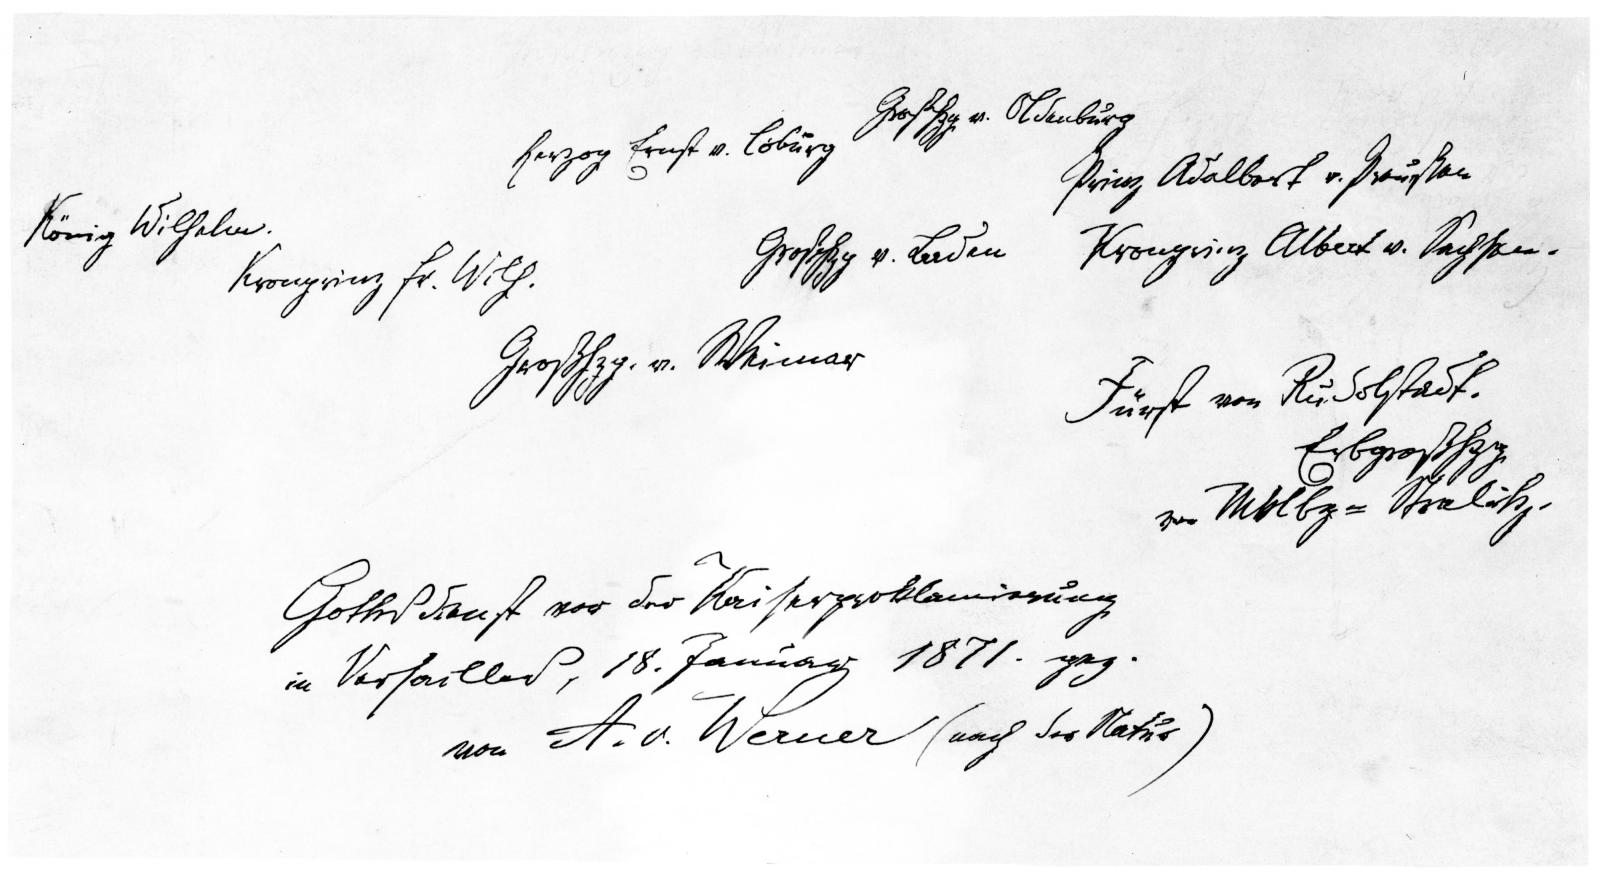 Großhzg v. Oldenburg
Herzog Ernst v. Coburg
Prinz Adalbert v. Preußen
König Wilhelm.
Großhzg v. Baden
Kronprinz Albert v. Sachsen.
Kronprinz Fr. Wilh.
Großhzg. v. Weimar
Fürst von Rudolstadt.
Erbgroßhzg
von Mklbg = Strelitz.
Gottesdienst vor der Kaiserproklamierung
in Versailles, 18. Januar 1871. gez.
von A. v. Werner (nach der Natur)